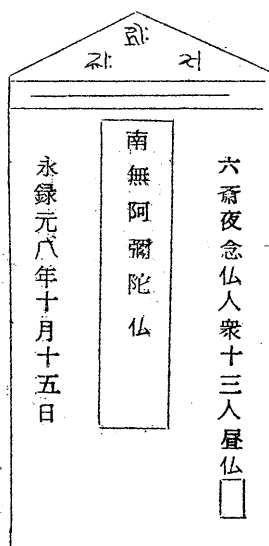 六斎夜念仏人衆十三人昼仏□
南無阿彌陀仏
永録元八年十月十五日